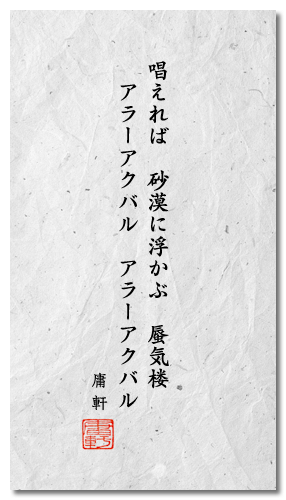 唱えれば　砂漠に浮かぶ　蜃気楼
アラーアクバル　アラーアクバル
庸軒
庸軒